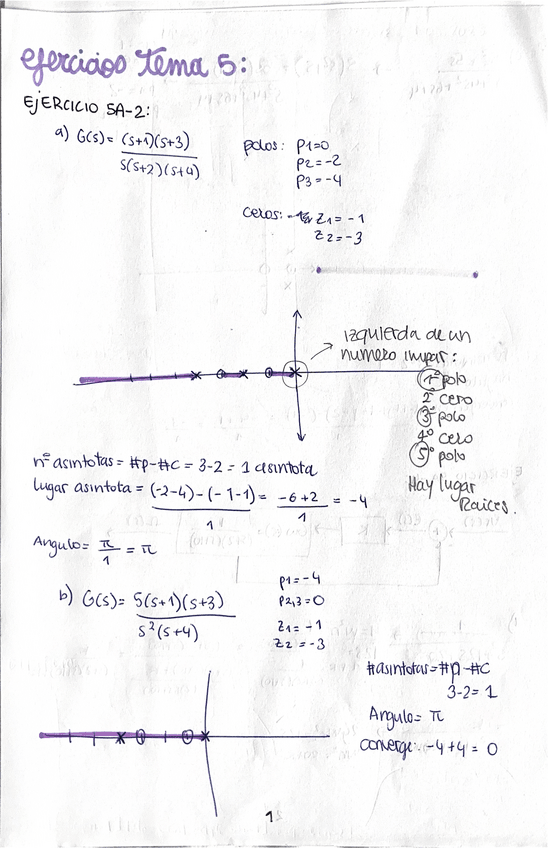 ejercicios tema 5:
EJERCICIO 5A-2:
a) G(s)= (s+1)(s+3)
s(s+2)(s+4)
polos: P1=0
P2=-2
P3=-4
ceros: Z1=-1
Z2=-3
izquierda de un
numero impar:
1º polo
2º cero
3º polo
4º cero
5º polo
Hay lugar
Raices.
nº asintotas = #p-#c = 3-2 = 1 asintota
lugar asintota = (-2-4)-(-1-1) = -6+2 = -4
1 1
Angulo= π = π
1
b) G(s)= 5(s+1)(s+3)
s²(s+4)
P1=-4
P2,3=0
Z1=-1
Z2=-3
#asintotas=#p-#c
3-2=1
Angulo= π
converge: -4+4=0
1